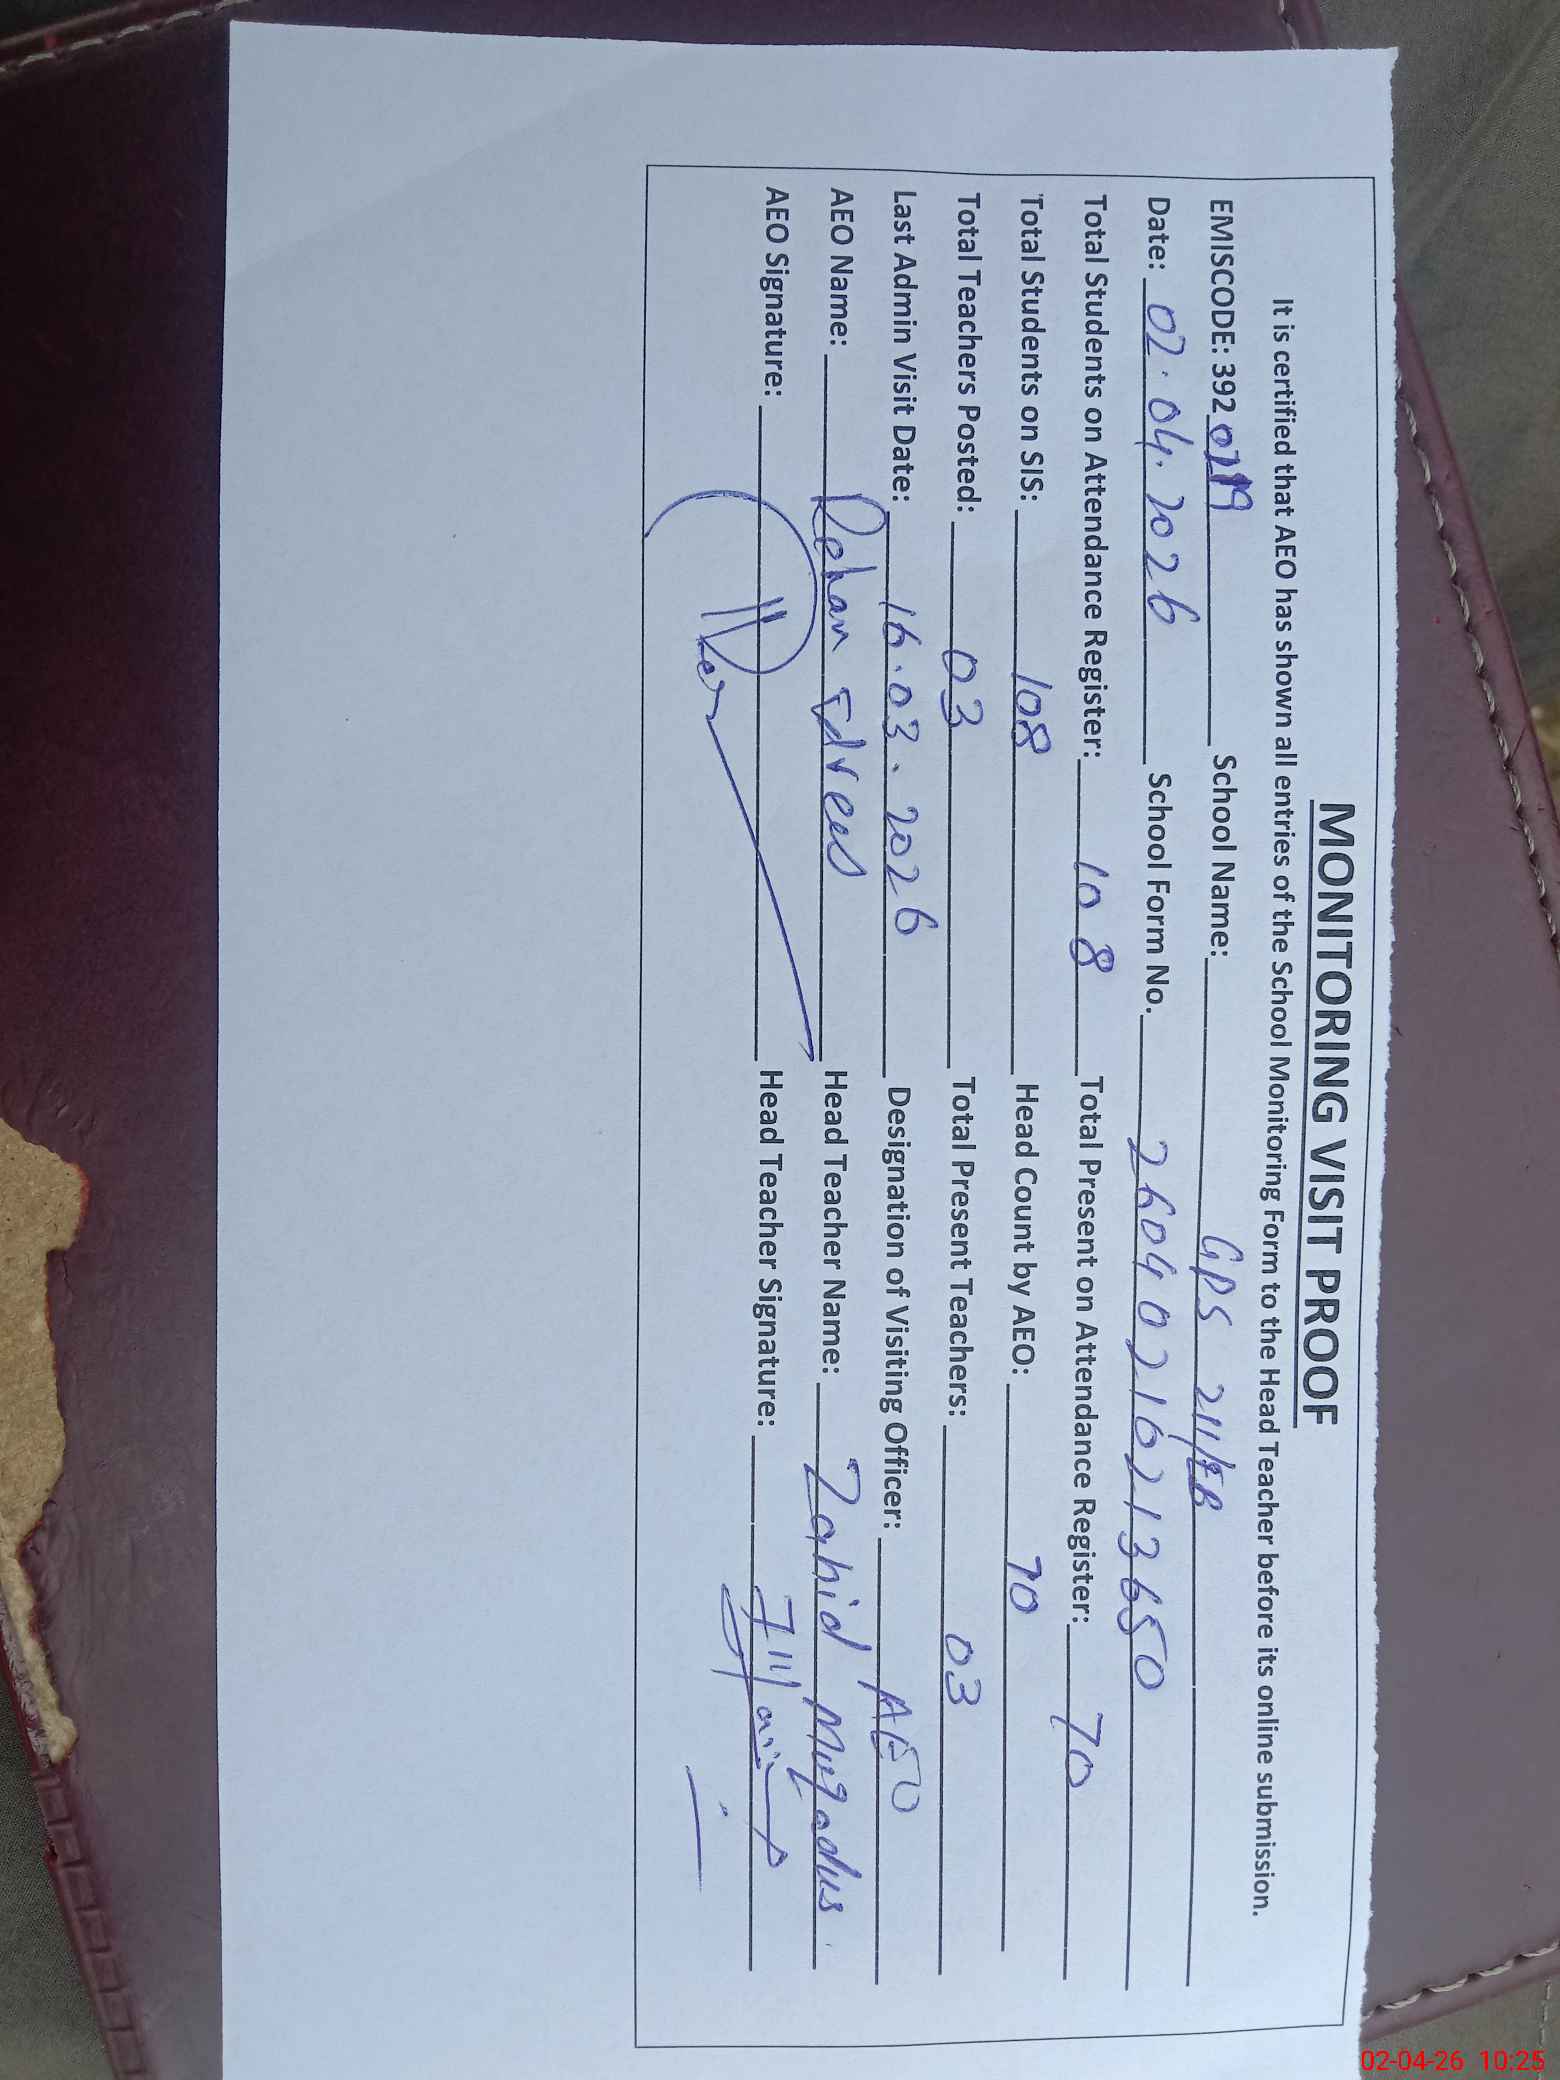 MONITORING VISIT PROOF
It is certified that AEO has shown all entries of the School Monitoring Form to the Head Teacher before its online submission.
EMISCODE: 392 School Name: GPS 211/EB
Date: 02.04.2026 School Form No. 26040210213650
Total Students on Attendance Register: 108 Total Present on Attendance Register: 70
Total Students on SIS: 108 Head Count by AEO: 70
Total Teachers Posted: 03 Total Present Teachers: 03
Last Admin Visit Date: 16.03.2026 Designation of Visiting Officer: AEO
AEO Name: Rehan Edrees Head Teacher Name: Zahid Mugadus
AEO Signature: Head Teacher Signature:
02-04-26 10:25